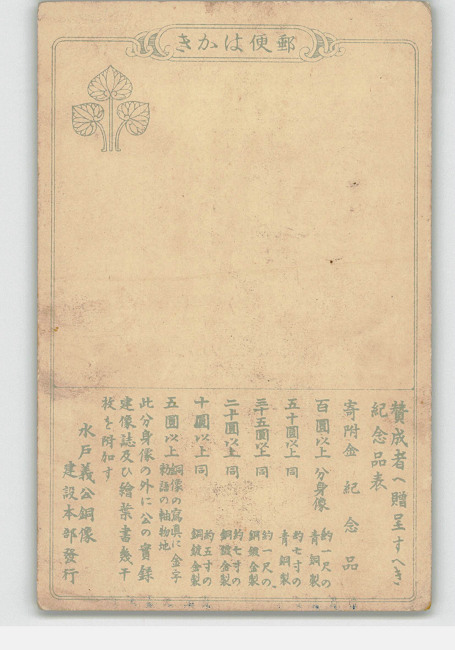 きかは便郵
賛成者へ贈呈すへき
紀念品表
寄附金 紀念品
百圓以上 分身像 約一尺の青銅製
五十圓以上 同 約七寸の青銅製
三十五圓以上 同 約一尺の銅鍍金製
二十圓以上 同 約七寸の銅鍍金製
十圓以上 同 約五寸の銅鍍金製
五圓以上 銅像の寫眞に金字物語の軸物地
此分身像の外に公の實録
建像誌及ひ繪葉書幾干
枚を附加す
水戸義公銅像
建設本部發行